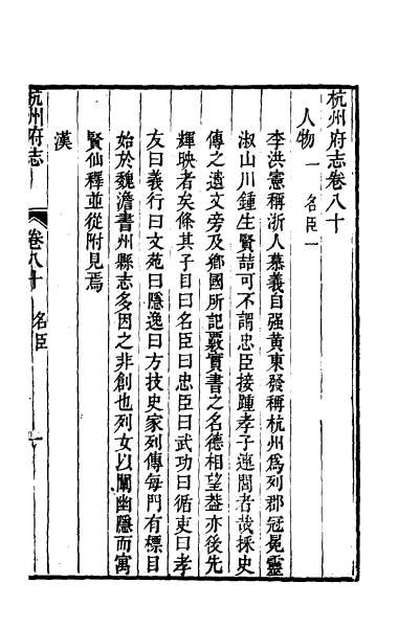 杭州府志卷八十
人物一 名臣一
李洪憲稱浙人慕義自强黄東發稱杭州爲列郡冠冕靈
淑山川鍾生賢喆可不謂忠臣接踵孝子連閭者哉採史
傳之遺文旁及鄉國所記覈實書之名德相望葢亦後先
輝映者矣條其子目曰名臣曰忠臣曰武功曰循吏曰孝
友曰義行曰文苑曰隱逸曰方技史家列傳每門有標目
始於魏澹書州縣志多因之非創也列女以闡幽隱而寓
賢仙釋並從附見焉
漢
杭州府志
卷八十 名臣 一